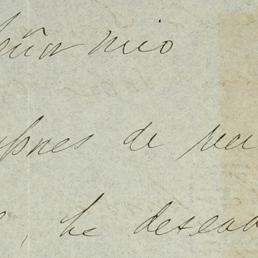 eñor mio
de
, he desead